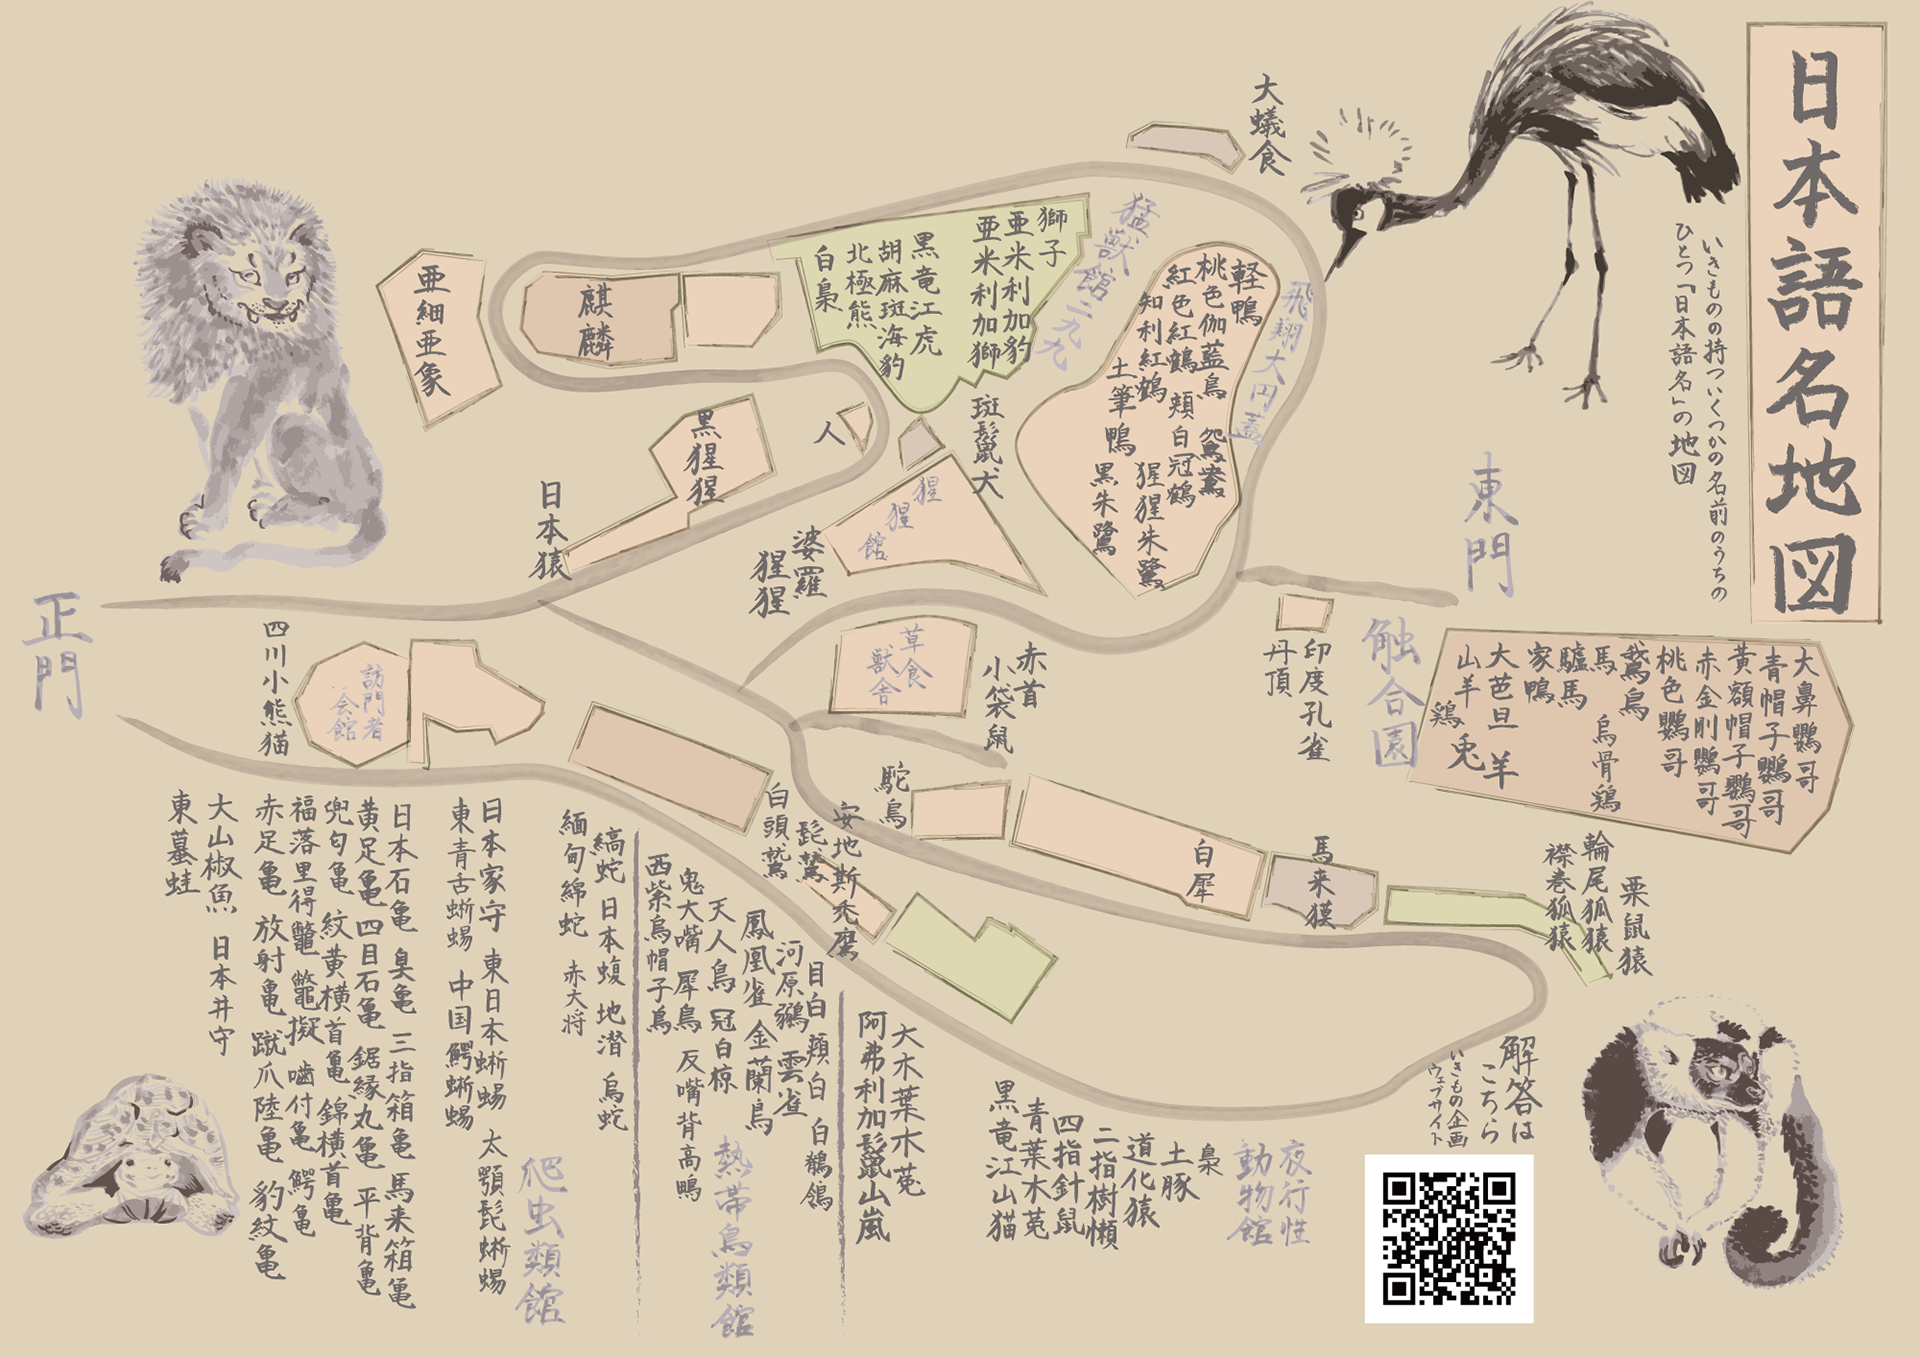 日本語名地図
いきものの持ついくつかの名前のうちの
ひとつ「日本語名」の地図
大蟻食
猛獣館二九九
獅子
亜米利加豹
亜米利加獅
黒竜江虎
胡麻斑海豹
北極熊
白梟
飛翔大円蓋
軽鴨
桃色伽藍鳥
鴛鴦
紅色紅鶴
頬白冠鶴
知利紅鶴
猩猩朱鷺
土筆鴨
黒朱鷺
麒麟
亜細亜象
斑鬣犬
人
黒猩猩
日本猿
猩猩館
婆羅
猩猩
東門
正門
触合園
大鼻鸚哥
青帽子鸚哥
黄額帽子鸚哥
赤金剛鸚哥
桃色鸚哥
鵞鳥
馬
烏骨鶏
驢馬
家鴨
大芭旦
羊
山羊
兎
鶏
印度孔雀
丹頂
草食
獣舎
赤首
小袋鼠
訪門者
会館
四川小熊猫
駝鳥
白犀
馬来獏
栗鼠猿
輪尾狐猿
襟巻狐猿
安地斯禿鷹
髭鷲
白頭鷲
夜行性
動物館
梟
土豚
道化猿
二指樹懶
四指針鼠
青葉木菟
黒竜江山猫
大木葉木菟
阿弗利加鬣鼠山嵐
熱帯鳥類館
目白
頬白
白鶺鴒
河原鶸
雲雀
鳳凰雀
金蘭鳥
天人鳥
冠白椋
鬼大嘴
犀鳥
反嘴背高鴫
西紫烏帽子鳥
爬虫類館
縞蛇
日本蝮
地潜
烏蛇
緬甸綿蛇
赤大将
日本家守
東日本蜥蜴
太顎髭蜥蜴
東青舌蜥蜴
中国鰐蜥蜴
日本石亀
臭亀
三指箱亀
馬来箱亀
黄足亀
四目石亀
鋸縁丸亀
平背亀
兜匂亀
紋黄横首亀
錦横首亀
福落里得鼈
鼈擬
噛付亀
鰐亀
赤足亀
放射亀
蹴爪陸亀
豹紋亀
大山椒魚
日本井守
東蟇蛙
解答は
こちら
いきもの企画
ウェブサイト